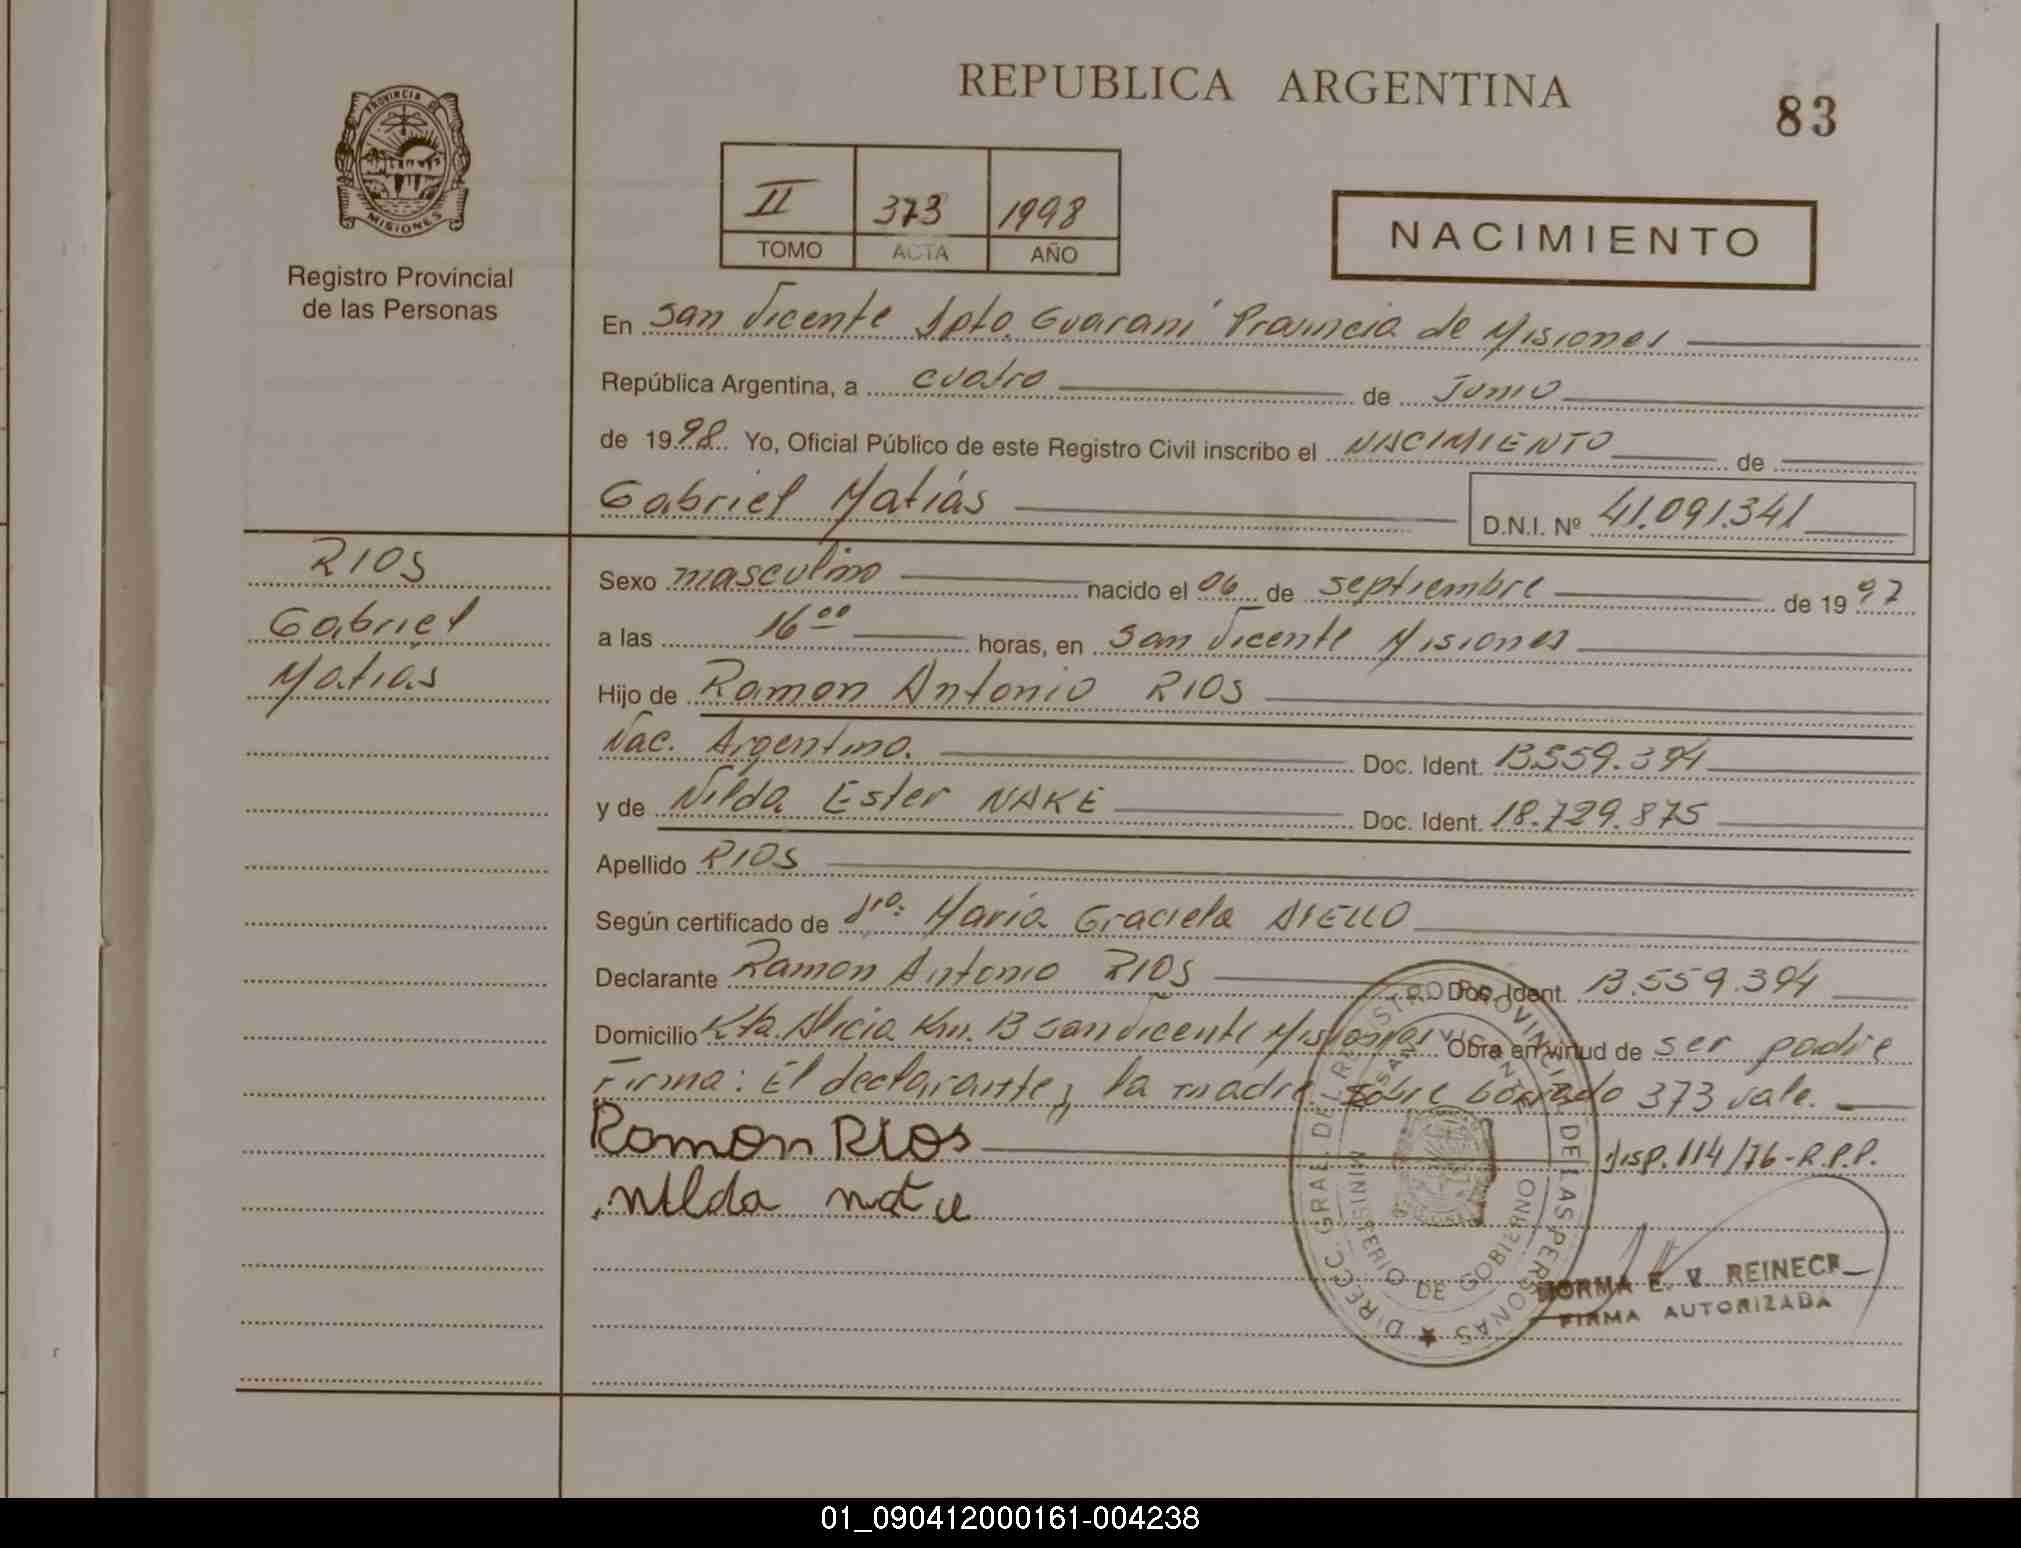 REPUBLICA ARGENTINA
83
PROVINCIA DE
MISIONES
Registro Provincial
de las Personas
II 373 1998
TOMO ACTA AÑO
NACIMIENTO
En San Vicente Dpto. Guaraní Provincia de Misiones
República Argentina, a cuatro de Junio
de 1998 Yo, Oficial Público de este Registro Civil inscribo el NACIMIENTO de
Gabriel Matías D.N.I. Nº 41.091.341
RIOS
Gabriel
Matías
Sexo masculino nacido el 06 de septiembre de 1997
a las 16 00 horas, en San Vicente Misiones
Hijo de Ramon Antonio RIOS
Nac. Argentino. Doc. Ident. 13.559.394
y de Nilda Ester NAKE Doc. Ident. 18.729.875
Apellido RIOS
Según certificado de Dra: María Graciela AIELLO
Declarante Ramon Antonio RIOS Doc. Ident. 13.559.394
Domicilio Kta. Alicia Km. 13 San Vicente Misiones Obra en virtud de ser padre
Firma: El declarante y la madre sobre borrado 373 vale.
Ramon Rios Disp. 114/76-R.P.P.
Nilda
DIRECC. GRAL. DEL REGISTRO PROVINCIAL DE LAS PERSONAS
SAN VICENTE
MINISTERIO DE GOBIERNO
NORMA E. V. REINECK
FIRMA AUTORIZADA
01_090412000161-004238